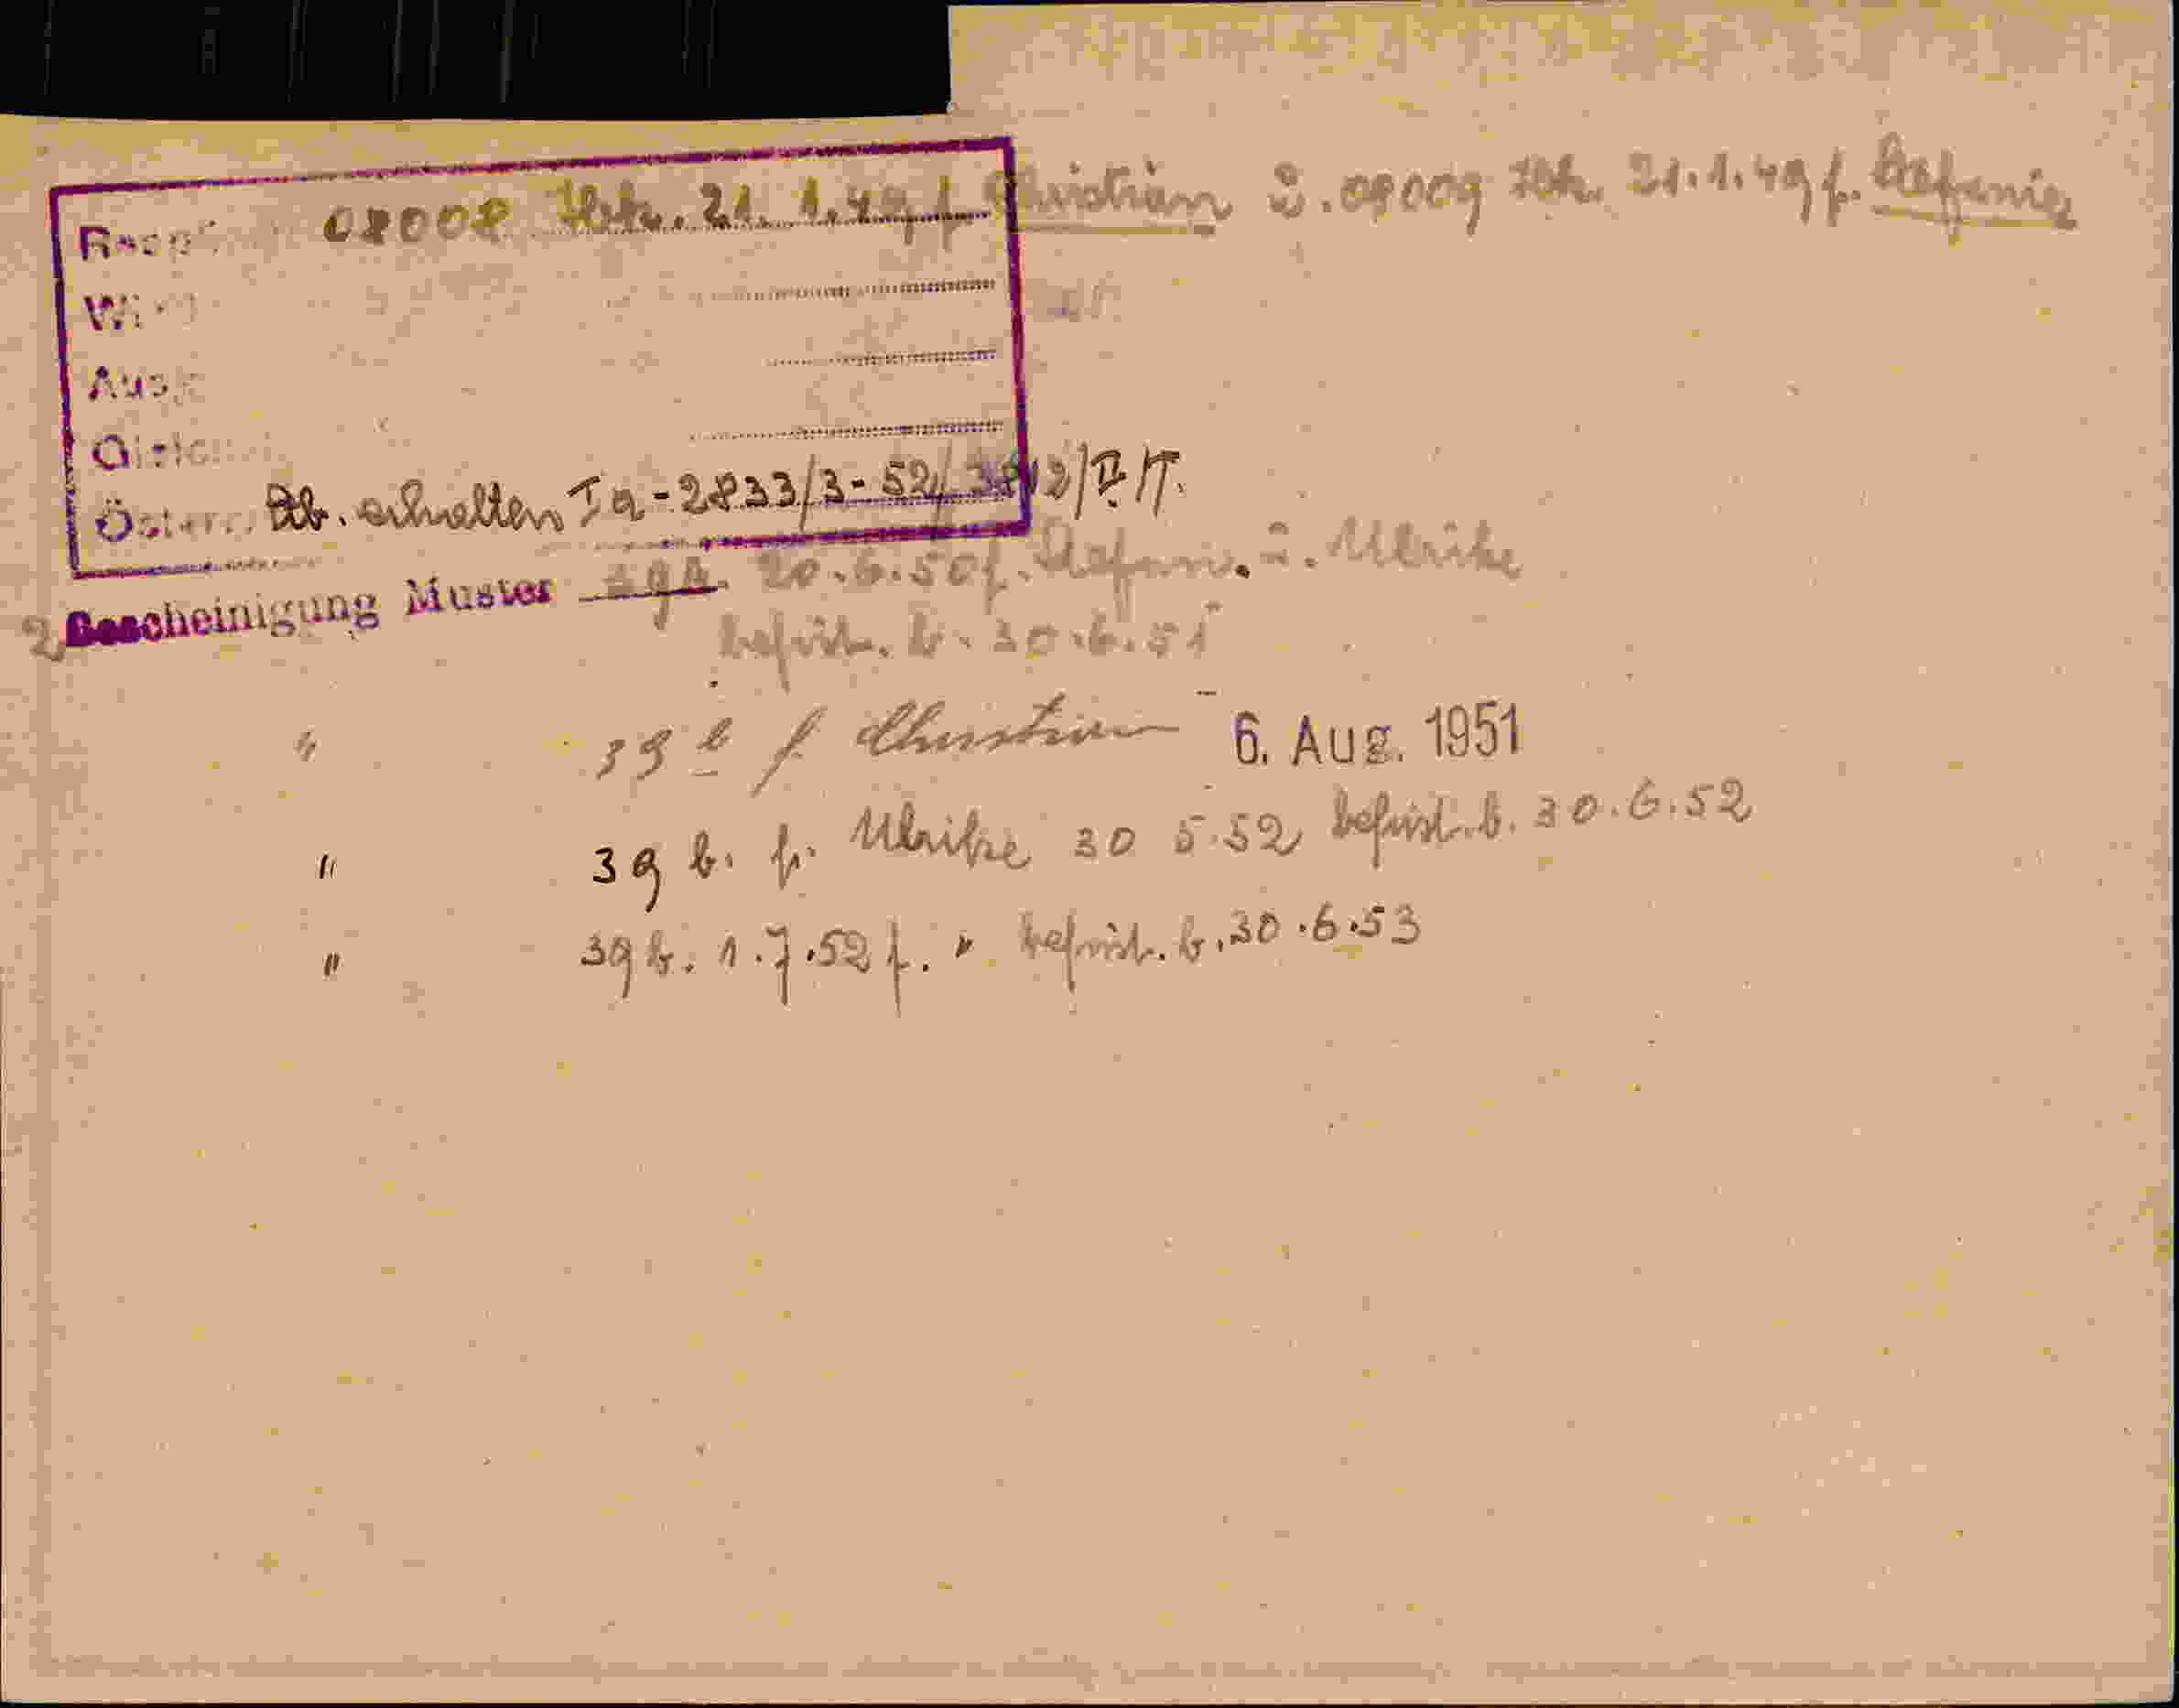 08008 Urk. 21. 1. 49 f. Christian 2. 08009 Urk. 21.1.49 f. Stefanie
Stb. erhalten Ia-2833/3-52/3812/II/T.
2 Bescheinigung Muster 39b. 20.6.50 f. Stefanie. 2. Ulrike
befrist. b. 30.6.51
" 39 b f. Christian 6. Aug. 1951
" 39 b. f. Ulrike 30 5.52 befrist. b. 30.6.52
" 39 b. 1.7.52 f. " befrist. b. 30.6.53